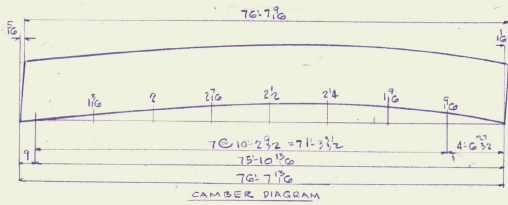 76'-7 9/16
5/16 1/16
1 3/16 2 2 7/16 2 1/2 2 1/4 1 9/16 9/16
7@10'-2 9/32 = 71'-3 31/32 4'-6 27/32
9 75'-10 13/16
76'-7 13/16
CAMBER DIAGRAM